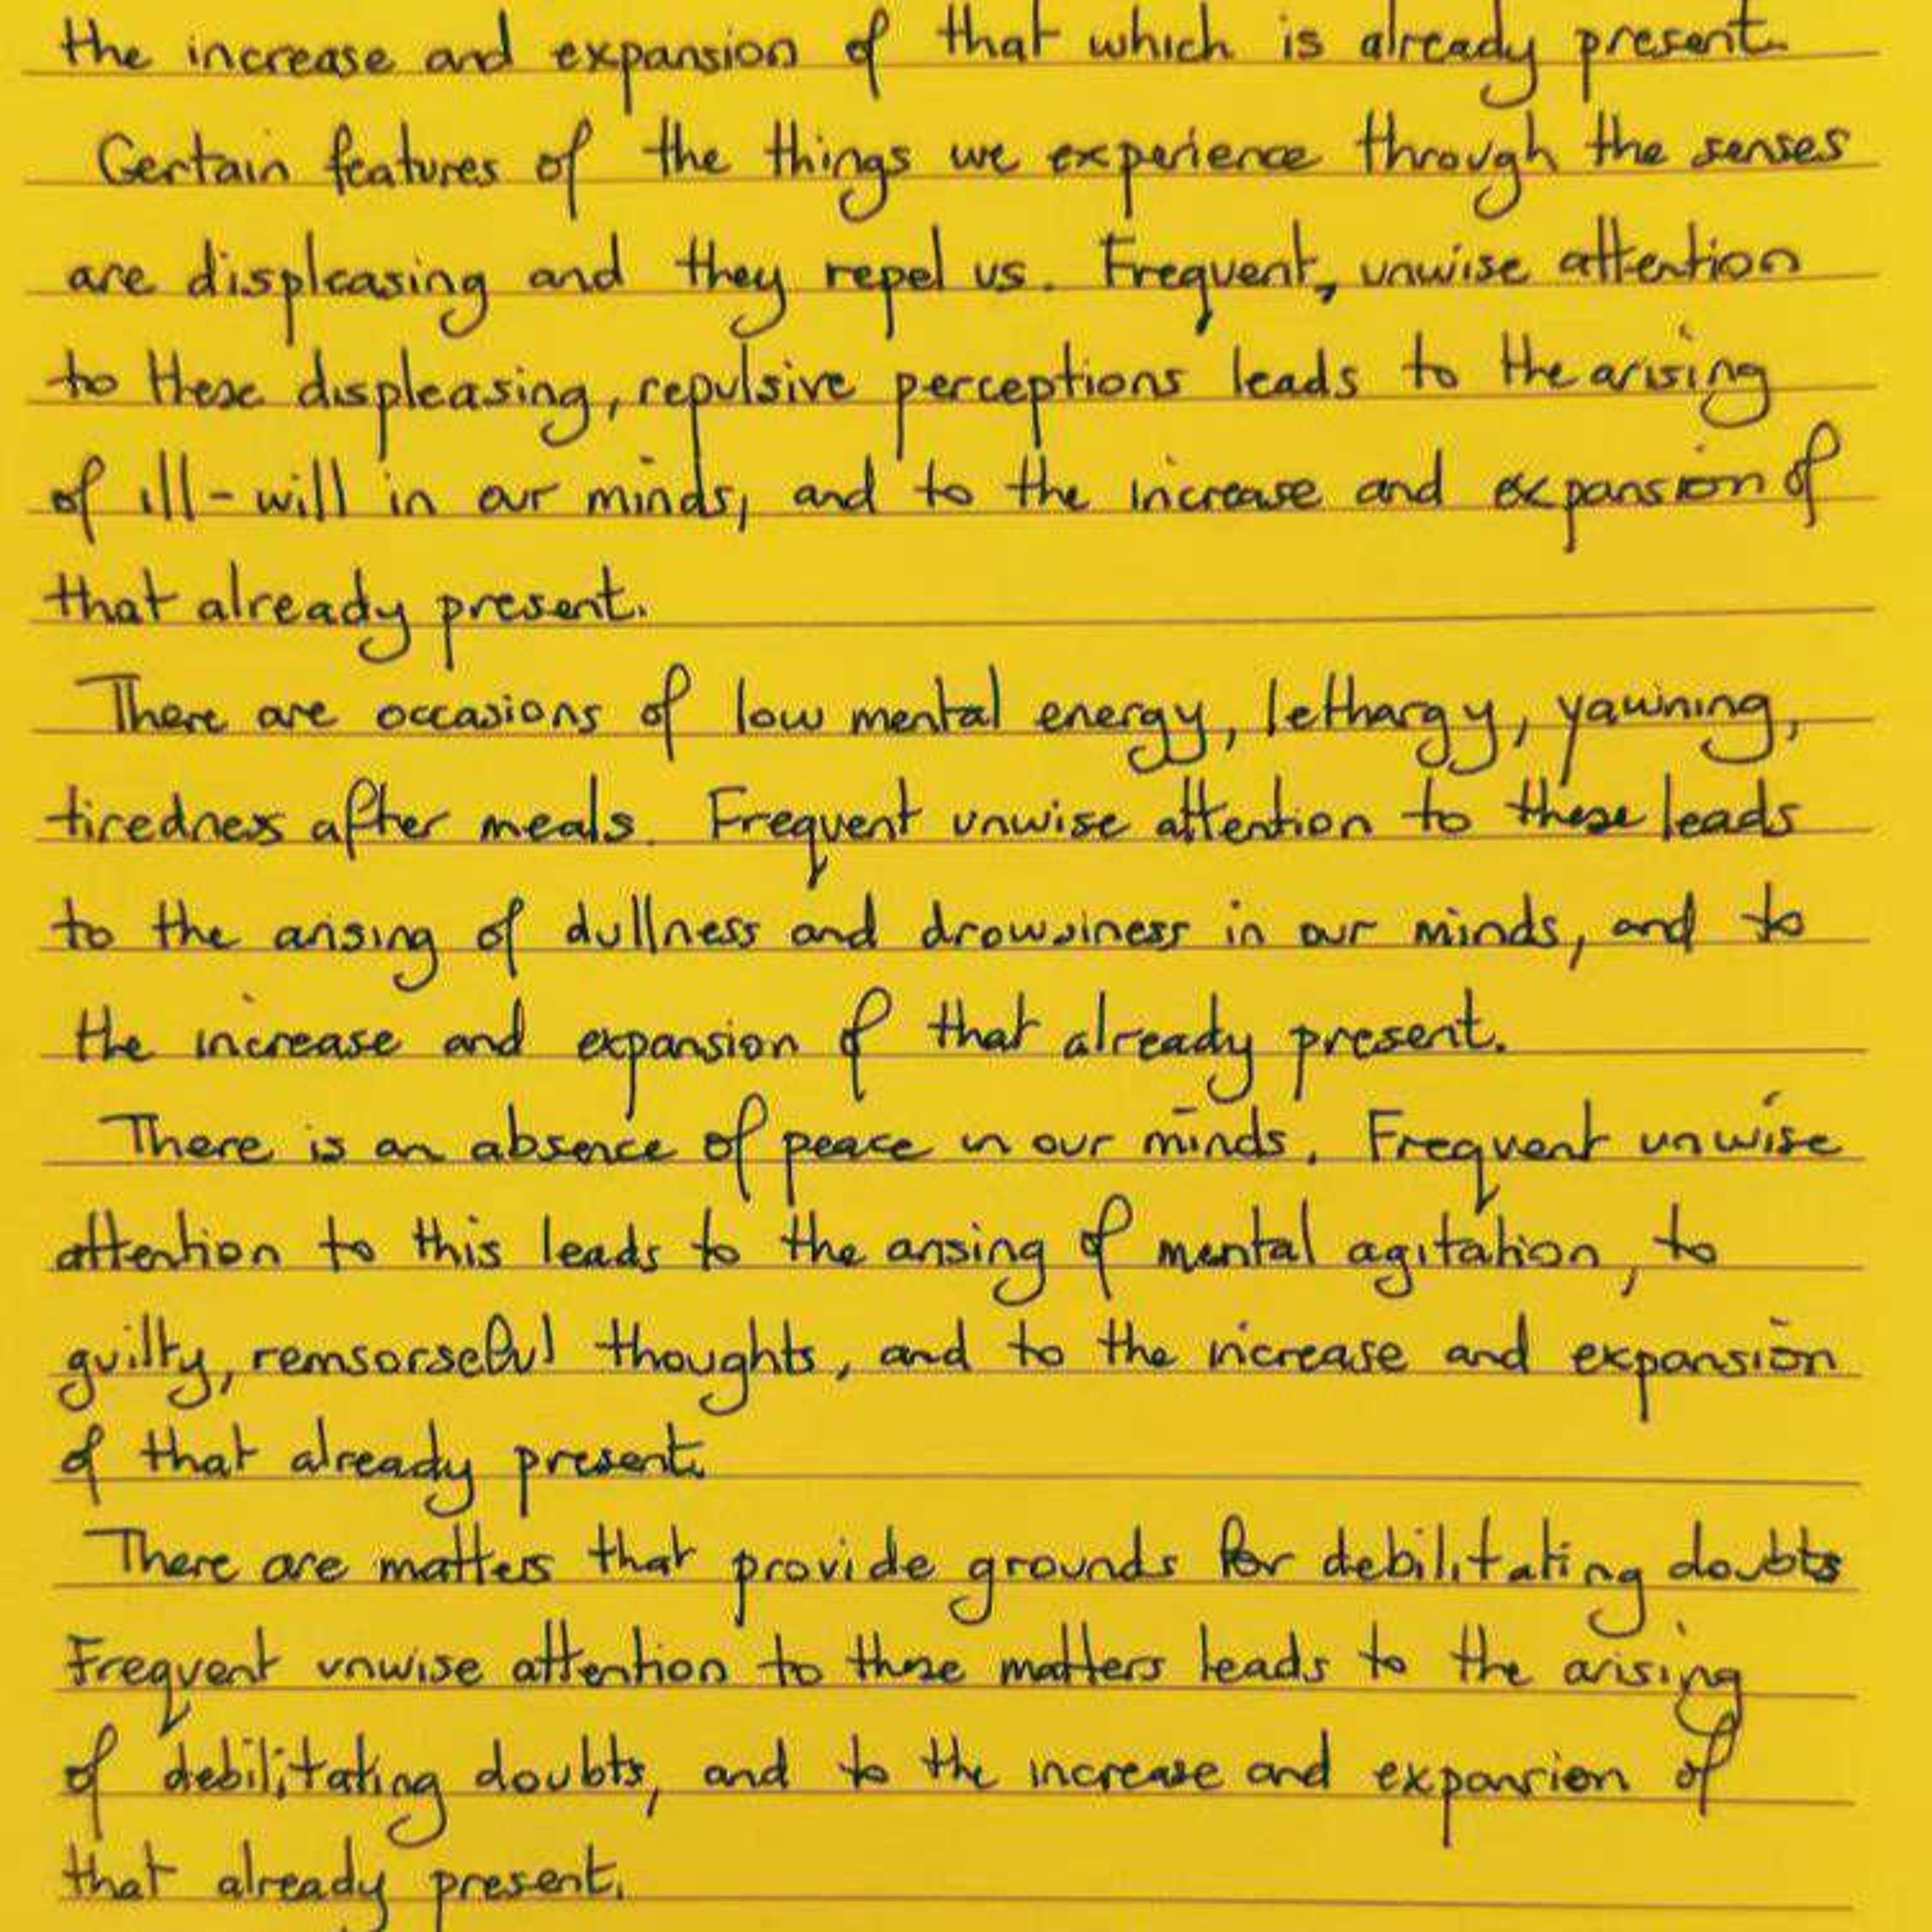 the increase and expansion of that which is already present.
Certain features of the things we experience through the senses
are displeasing and they repel us. Frequent, unwise attention
to these displeasing, repulsive perceptions leads to the arising
of ill-will in our minds, and to the increase and expansion of
that already present.
There are occasions of low mental energy, lethargy, yawning,
tiredness after meals. Frequent unwise attention to these leads
to the arising of dullness and drowsiness in our minds, and to
the increase and expansion of that already present.
There is an absence of peace in our minds. Frequent unwise
attention to this leads to the arising of mental agitation, to
guilty, remsorseful thoughts, and to the increase and expansion
of that already present.
There are matters that provide grounds for debilitating doubts
Frequent unwise attention to these matters leads to the arising
of debilitating doubts, and to the increase and expansion of
that already present.